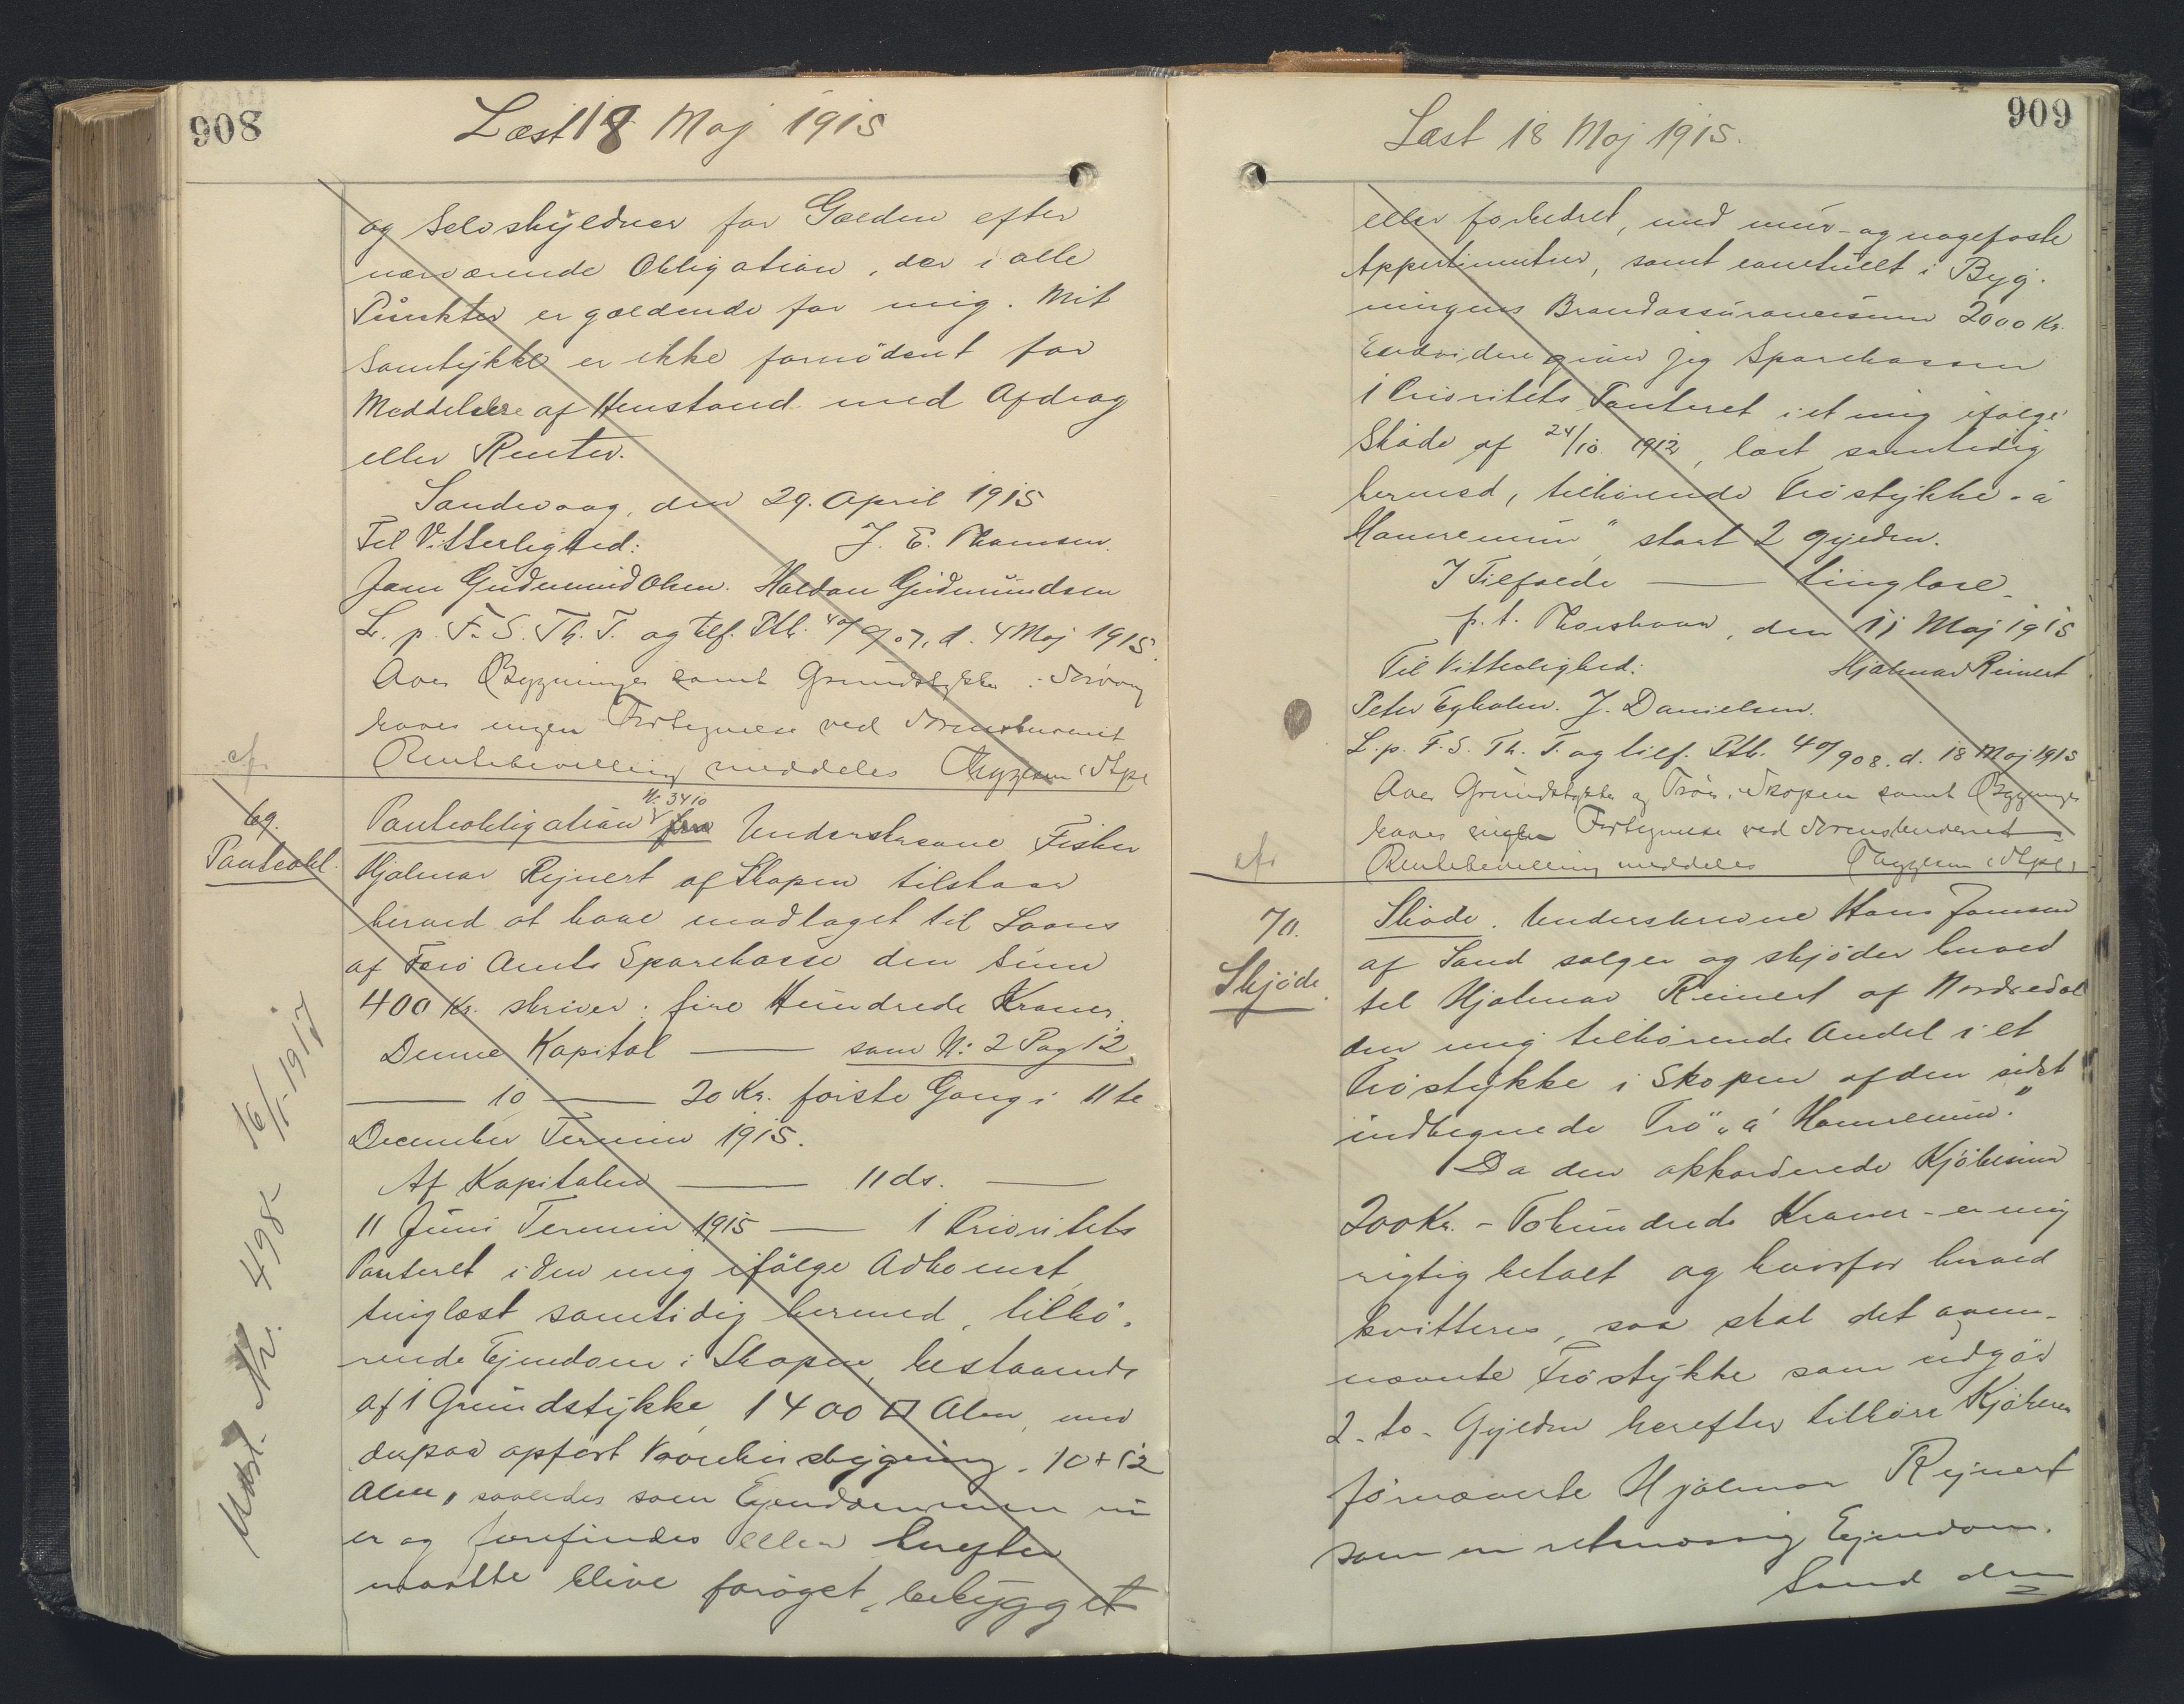 908
Læst 18 Maj 1915
og Selvskyldner for Gælden efter
nærværende Obligation, der i alle
Punkter er gældende for mig. Mit
Samtykke er ikke fornödent for
Meddelelse af Henstand med Afdrag
eller Renter.
Sandevaag, den 29. April 1915
Til Vitterlighed: J. E. Thomsen.
Joen Gudmund Olsen. Haldan Gudmundsen
L. p. F. S. Th. T. og tilf. Ptb. 40/907, d. 4 Maj 1915.
Over Bygninger samt Grundstykke i Sörvaag
haves ingen Fortegnelse ved Sorenskriveriet
Rentebevilling meddeles
cfr
69.
Panteobl.
Panteobligation Nr. 3410 Underskrevne Fisker
Hjalmar Rejnert af Skopen tilstaar
herved at have modtaget til Laans
af Færö Amts Sparekasse den Sum
400 Kr. skriver: fire Hundrede Kroner.
Denne Kapital — som N: 2 Pag 12
— 10 — 20 Kr. förste Gang i 11te
December Termin 1915.
Af Kapitalen — 11 ds. —
11 Juni Termin 1915 — 1 Prioritets
Panteret i den mig ifölge Adkomst,
tinglæst samtidig hermed, tilhö-
rende Ejendom i Skopen, bestaaende
af 1 Grundstykke, 1400 □ Alen, med
derpaa opfört Vaaningsbygning, 10+12
Alen, saaledes som Ejendommen nu
er og forefindes eller herefter
maatte blive foröget, bebygget
Udsl. Nr. 498 16/1-1917
909
Læst 18 Maj 1915.
eller forbedret, med mur- og nagefaste
Appertinentier, samt eventuelt i Byg-
ningens Brandassurancesum 2000 Kr.
Endvidere giver jeg Sparekassen
1 Prioritets Panteret i et mig ifölge
Sköde af 24/10 1912, læst samtidig
hermed, tilhörende Tröstykke "á
Hamrenum" stort 2 gyjedn.
I Tilfælde — tinglæse.
p. t. Thorshavn, den 11 Maj 1915
Til Vitterlighed: Hjalmar Reinert
Peter Egholm. J. Danielsen.
L. p. F. S. Th. T. og tilf. Ptb. 40/908. d. 18 Maj 1915
Over Grundstykke og Tröer i Skopen samt Bygninger
haves ingen Fortegnelse ved Sorenskriveriet
Rentebevilling meddeles
cfr
70.
Skjöde.
Sköde. Underskrevne Hans Joensen
af Sand sælger og skjöder herved
til Hjalmar Reinert af Nordredal
den mig tilhörende Andel i et
Tröstykke i Skopen af den sidst
indhegnede Trö "á Hamrenum."
Da den akkorderede Kjöbesum
200 Kr. - Tohundrede Kroner - er mig
rigtig betalt og hvorfor herved
kvitteres, saa skal det oven-
nævnte Tröstykke som udgör
2 - to - Gyjedn herefter tilhöre Kjöberen
fornævnte Hjalmar Rejnert
som en retmæssig Ejendom.
Sand den